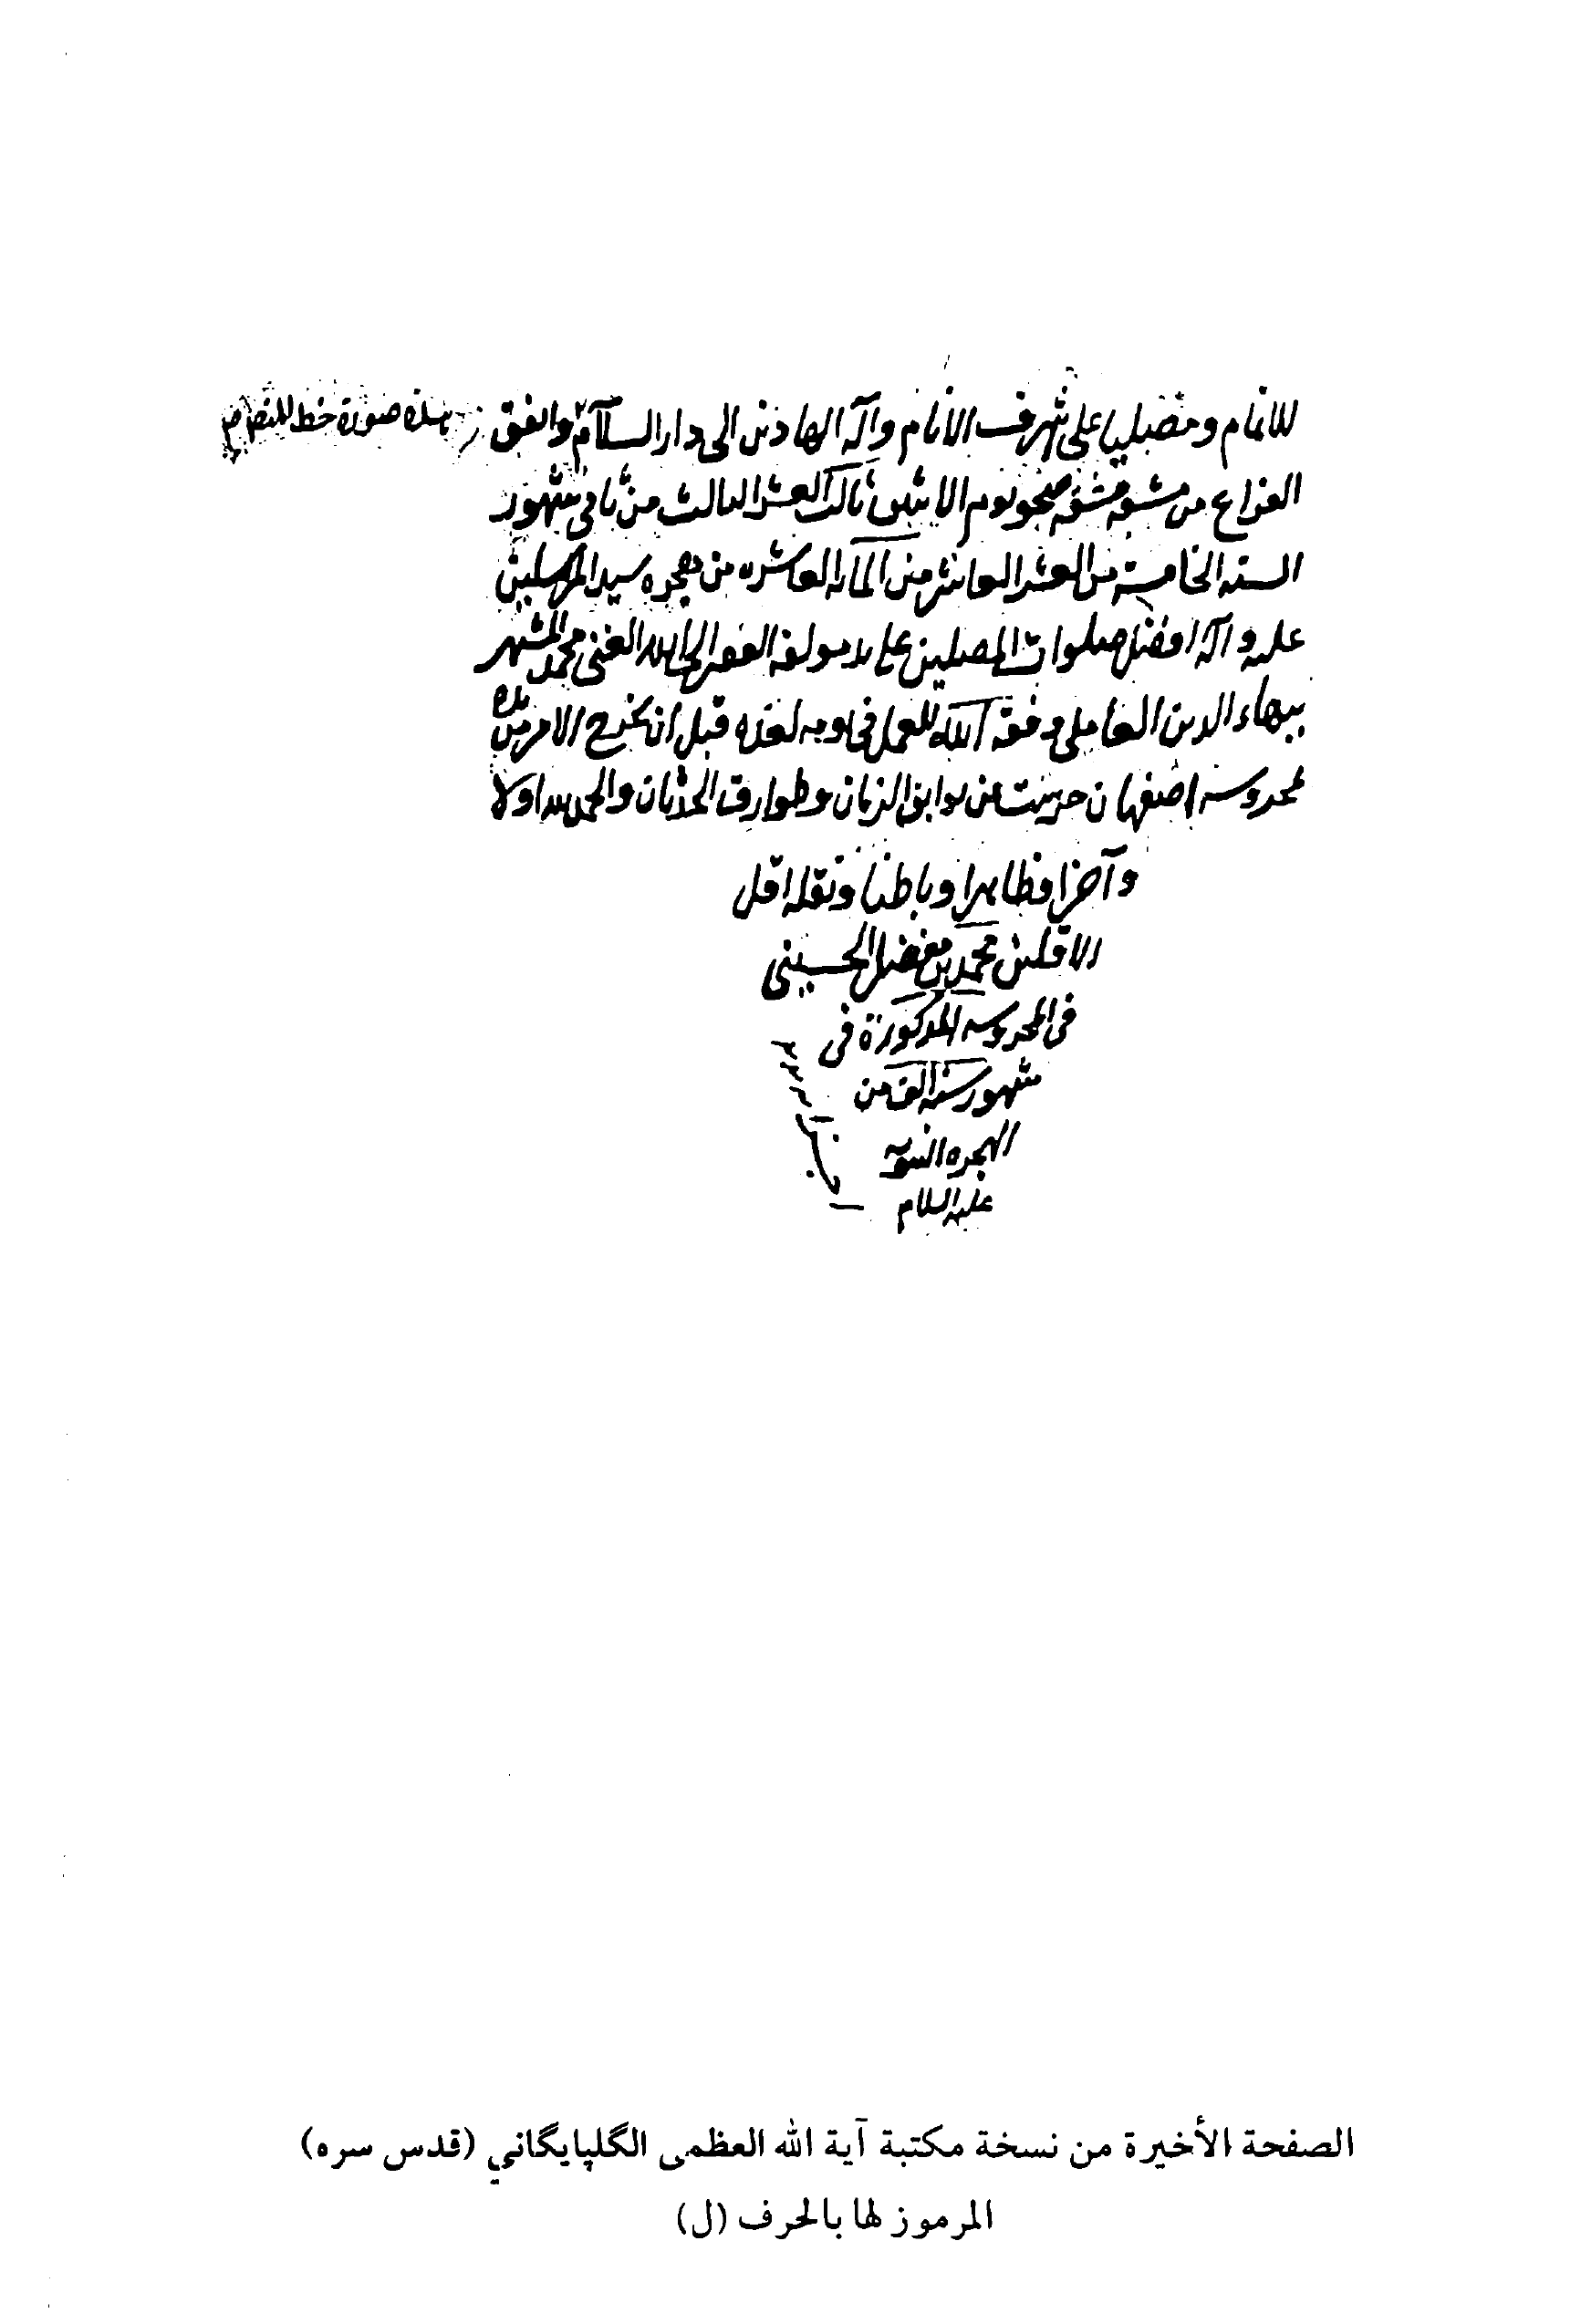 للانام ومصليا على شرف الأنام وآله الهادين الى دار السلام واتفق
هذه صورة خط المصنف
الفراغ من مشقه ضحوة يوم الاثنين ثالث العشر الثالث من ثاني شهور
السنه الخامسة من العشر العاشر من المائة العاشره من هجره سيد المرسلين
عليه وآله افضل صلوات المصلين على يد مولفه الفقير الى الله الغني محمد المشتهر
ببهاء الدين العاملي وفقه الله للعمل في يومه لغده قبل ان يخرج الامر من يده
بمحروسه اصفهان حرست عن بوايق الزمان وطوارق الحدثان والحمد لله اولا
وآخرا وظاهرا وباطنا ونقله اقل
الاقلين محمد بن الحسيني
في المحروسه المذكورة في
شهور سنه الف من
الهجره النبويه
عليه السلام
الصفحة الأخيرة من نسخة مكتبة آية الله العظمى الگلپايگاني (قدس سره)
المرموز لها بالحرف (ل)